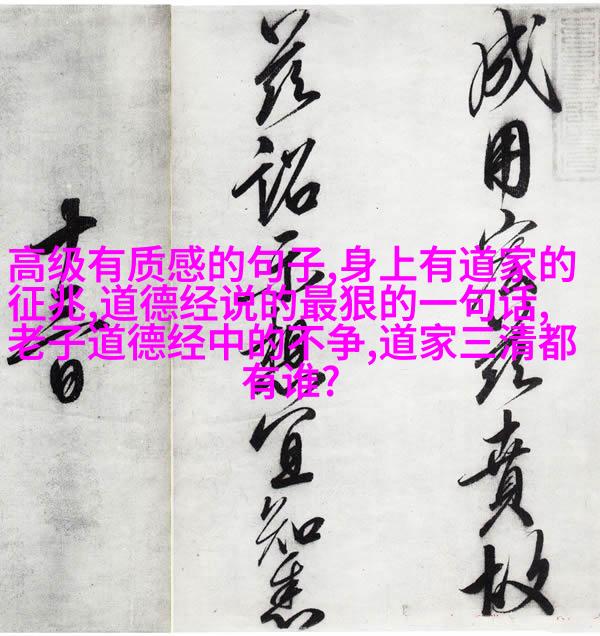 高级有质感的句子,身上有道家的
征兆,道德经说的最狠的一句话,
老子道德经中的不争,道家三清都
有谁?
成用茲賁故
茲詔示想宜知悉
十日